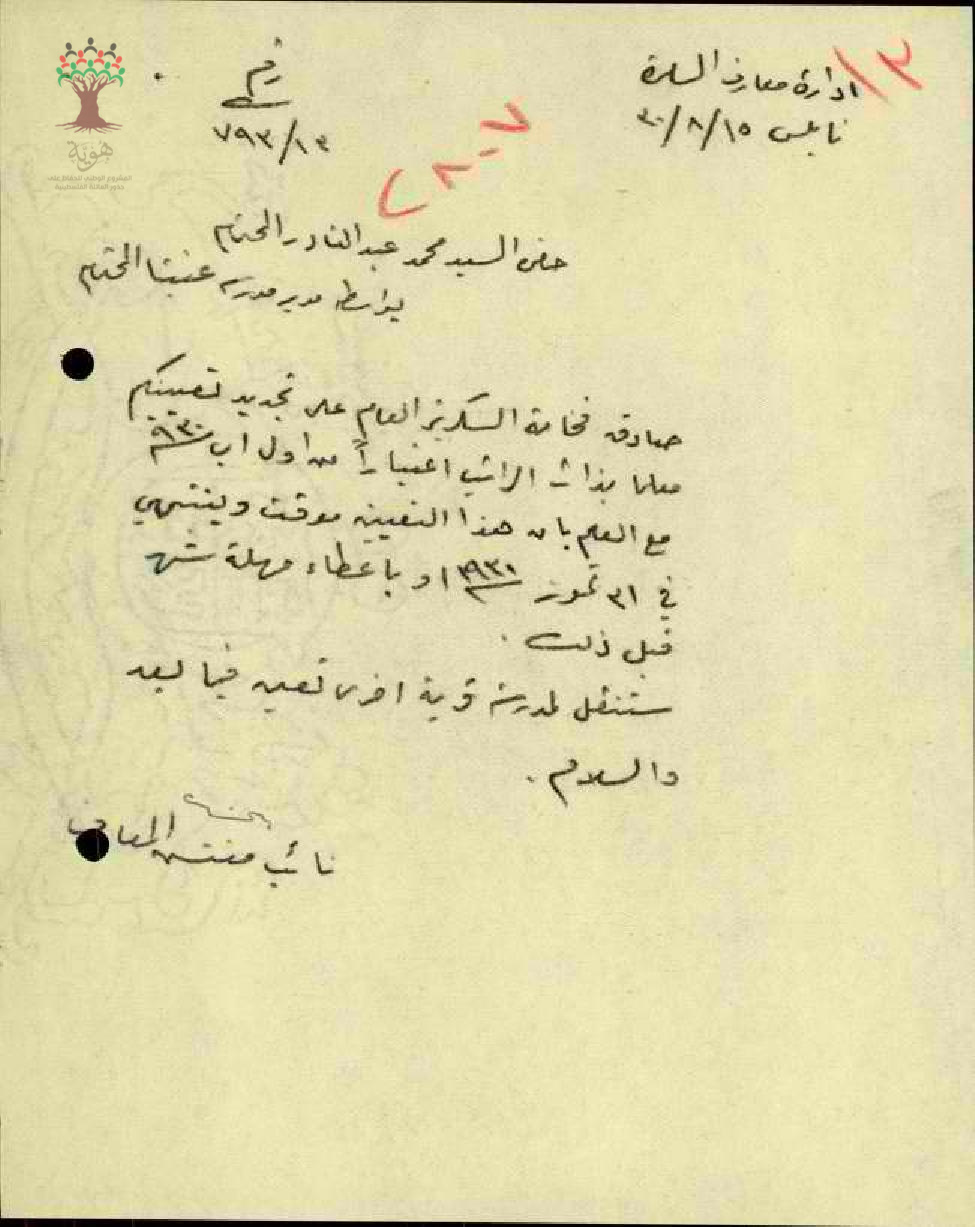 ادارة معارف السامرة
نابلس ١٥/٨/٣٠
١٣
رقم
٧٩٣/١٣
هوية
المشروع الوطني للحفاظ على
جذور العائلة الفلسطينية
حضرة السيد محمد عبد القادر المحترم
بواسطة مدير مدرسة عنبتا المحترم
صادق فخامة السكرتير العام على تجديد تعيينكم
معلما بذات الراتب اعتباراً من اول اب ٩٣٠
مع العلم بان هذا التعيين موقت وينتهي
في ٣١ تموز او باعطاء مهلة شهر
قبل ذلك.
ستنقل لمدرسة قرية اخرى تعين فيما بعد
والسلام.
نائب مفتش المعارف